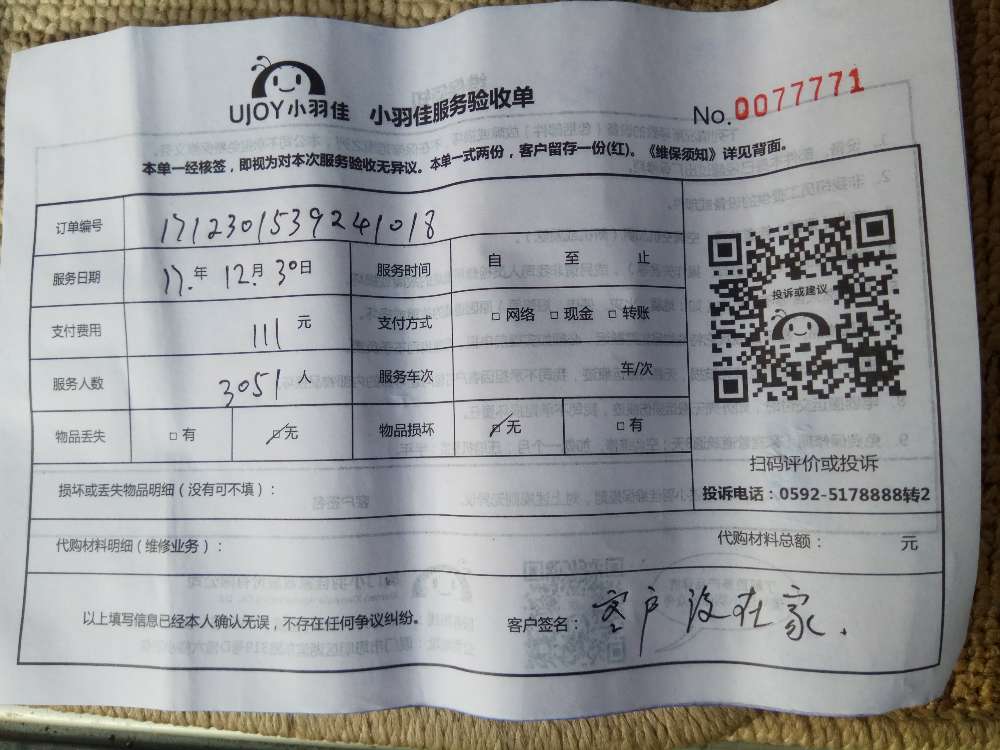 UJOY小羽佳 小羽佳服务验收单 No.0077771
本单一经核签，即视为对本次服务验收无异议。本单一式两份，客户留存一份(红)。《维保须知》详见背面。
订单编号 1712301539241018
服务日期 17.年 12.月 30日 服务时间 自 至 止
支付费用 111 元 支付方式 □ 网络 □ 现金 □ 转账
服务人数 3051 人 服务车次 车/次
物品丢失 □ 有 □ 无 物品损坏 □ 无 □ 有
投诉或建议
扫码评价或投诉
投诉电话：0592-5178888转2
损坏或丢失物品明细（没有可不填）：
代购材料明细（维修业务）： 代购材料总额： 元
以上填写信息已经本人确认无误，不存在任何争议纠纷。 客户签名： 客户没在家.